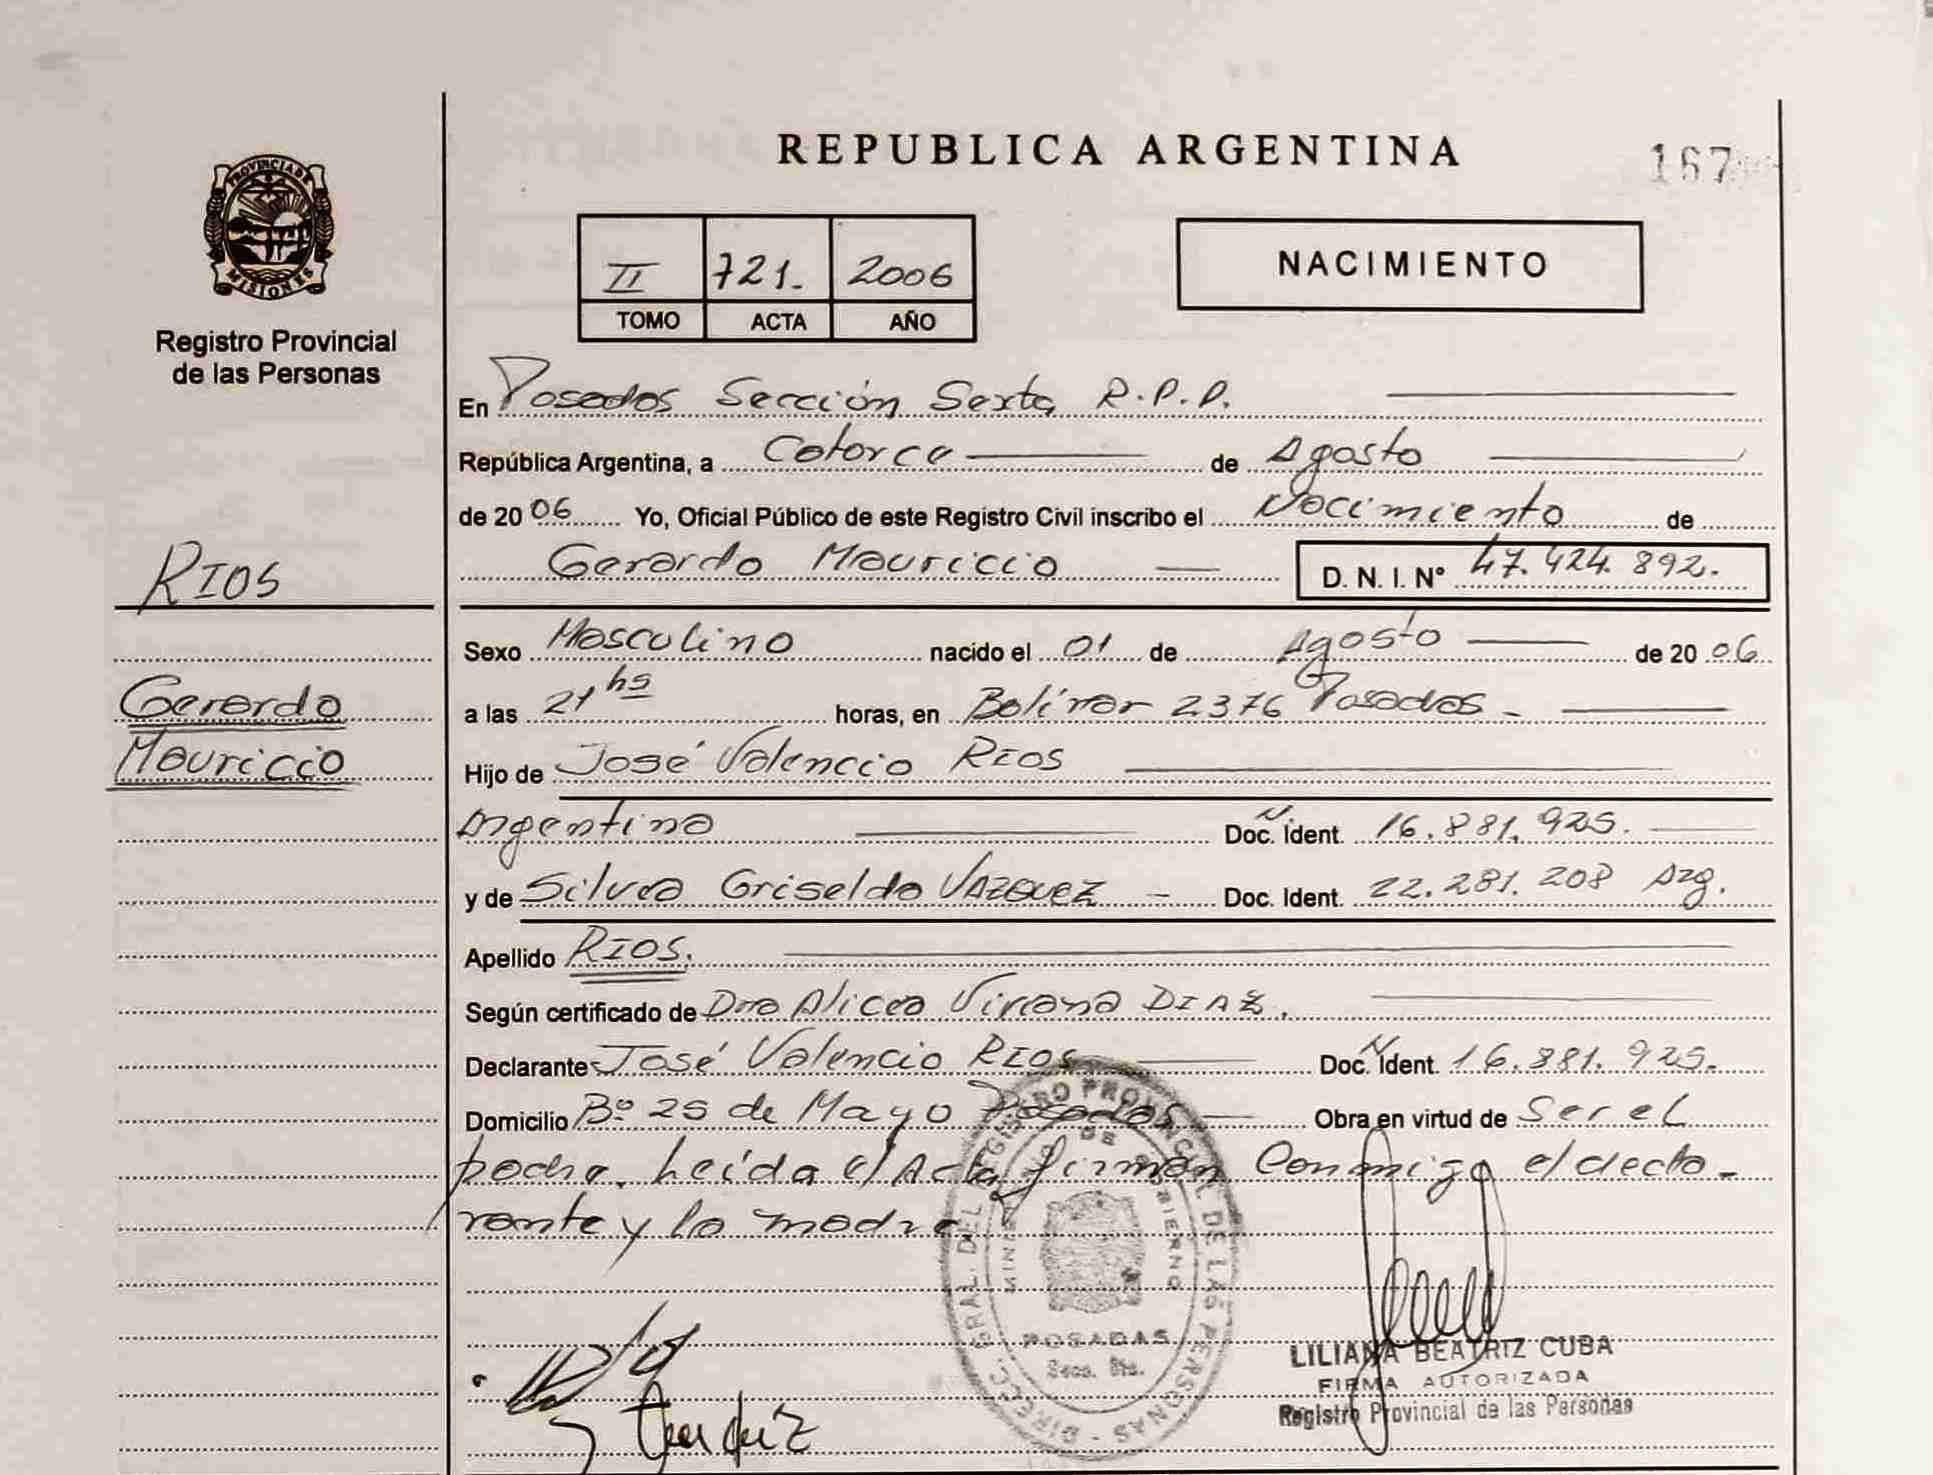 REPUBLICA ARGENTINA
167
PROVINCIA DE
MISIONES
Registro Provincial
de las Personas
II 721. 2006
TOMO ACTA AÑO
NACIMIENTO
En Posadas Sección Sexta R.P.P.
República Argentina, a Catorce de Agosto
de 2006 Yo, Oficial Público de este Registro Civil inscribo el Nacimiento de
Gerardo Mauricio D. N. I. N° 47.424.892.
RIOS
Sexo Masculino nacido el 01 de Agosto de 2006
Gerardo
a las 21 hs horas, en Bolívar 2376 Posadas -
Mauricio
Hijo de José Valencio RIOS
Argentino Doc. Ident. 16.881.925.
y de Silvia Griselda VAZQUEZ - Doc. Ident 22.281.208 Arg.
Apellido RIOS.
Según certificado de Dra Alicia Viviana DIAZ.
Declarante José Valencio RIOS Doc. Ident. 16.881.925.
Domicilio Bº 25 de Mayo Posadas Obra en virtud de Ser el
padre. Leída el Acta firman Conmigo el decla-
rante y la madre
DIRECC. GRAL. DEL REGISTRO PROVINCIAL DE LAS PERSONAS
MINISTERIO DE GOBIERNO
POSADAS
Secc. 6ta.
LILIANA BEATRIZ CUBA
FIRMA AUTORIZADA
Registro Provincial de las Personas